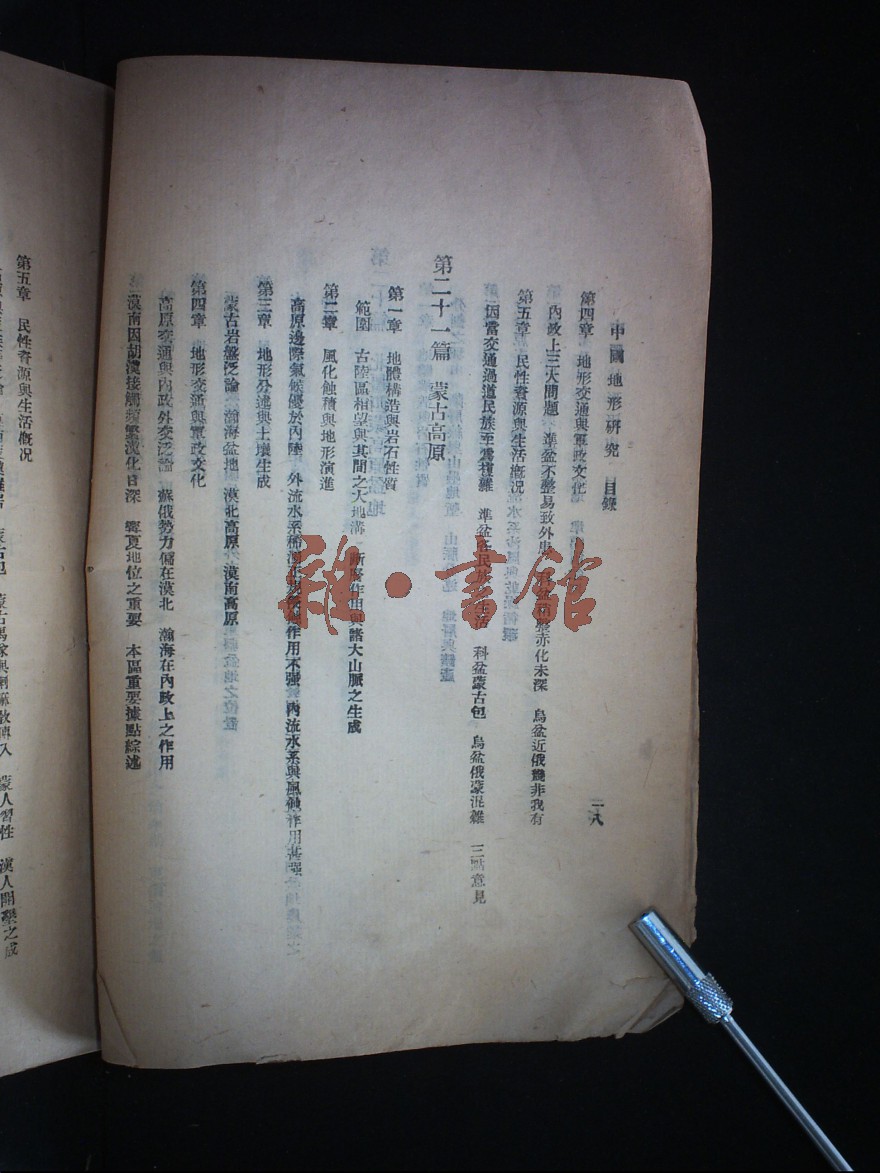 中國地形研究 目錄
二八
第四章 地形交通與軍政文化
內政上三大問題 準盆不整易致外患 科盆 赤化未深 烏盆近俄幾非我有
第五章 民性資源與生活概況
因當交通過道民族至爲複雜 準盆各民族 生活 科盆蒙古包 烏盆俄蒙混雜 三點意見
第二十一篇 蒙古高原
第一章 地體構造與岩石性質
範圍 古陸區相望與其間之大地溝 斷裂作用與諸大山脈之生成
第二章 風化蝕積與地形演進
高原邊際氣候優於內陸 外流水系稀 作用不強 內流水系與風蝕作用甚强
第三章 地形分述與土壤生成
蒙古岩盤泛論 瀚海盆地 漠北高原 漠南高原
第四章 地形交通與軍政文化
高原交通與內政外交泛論 蘇俄勢力偏在漠北 瀚海在內政上之作用
漠南因胡漢接觸頻繁漢化日深 寧夏地位之重要 本區重要據點綜述
第五章 民性資源與生活概況
蒙人習性 漢人開墾之成
雜·書館